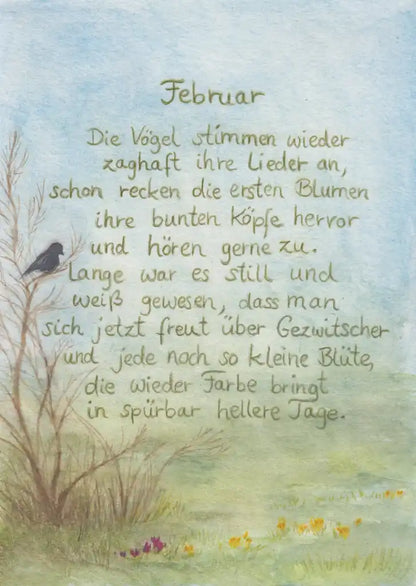 Februar
Die Vögel stimmen wieder
zaghaft ihre Lieder an,
schon recken die ersten Blumen
ihre bunten Köpfe hervor
und hören gerne zu.
Lange war es still und
weiß gewesen, dass man
sich jetzt freut über Gezwitscher
und jede noch so kleine Blüte,
die wieder Farbe bringt
in spürbar hellere Tage.